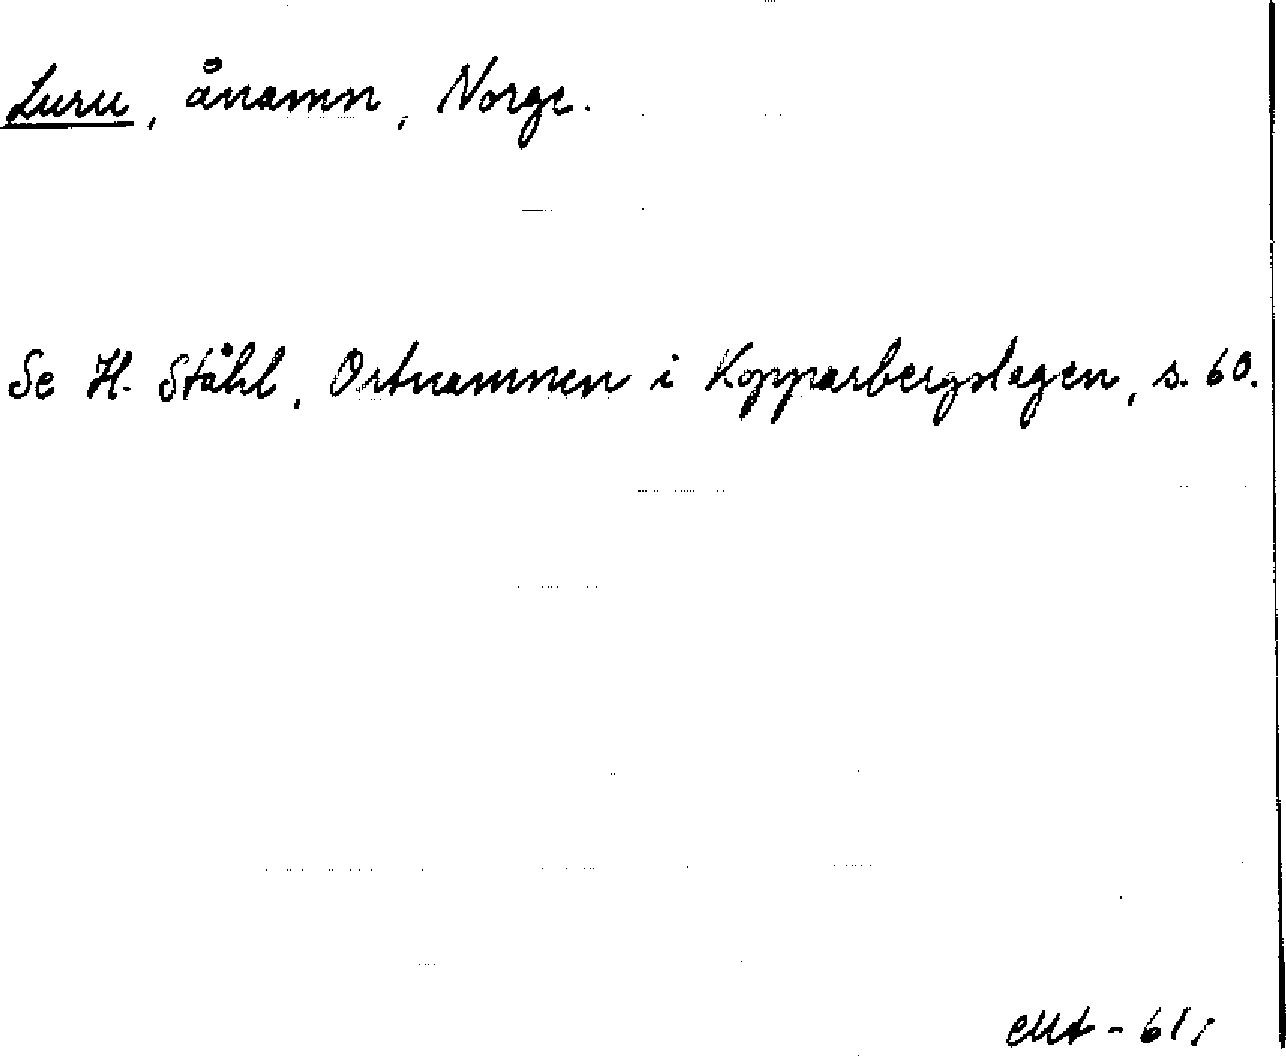 Luru, ånamn, Norge.
Se H. Ståhl, Ortnamnen i Kopparbergslagen, s. 60.